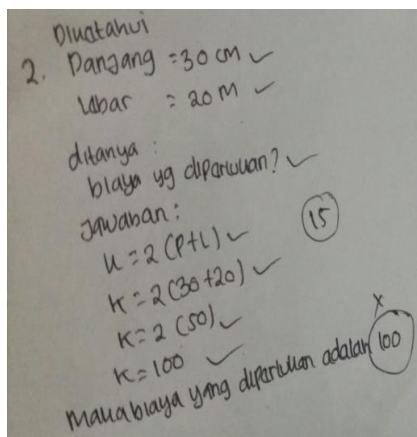 Diketahui
2. Panjang = 30 cm ✓
Lebar = 20 m ✓
ditanya :
biaya yg diperlukan? ✓
Jawaban :
15
K = 2 (P+L) ✓
K = 2 (30+20) ✓
K = 2 (50) ✓
K = 100 ✓
x
Maka biaya yang diperlukan adalah 100